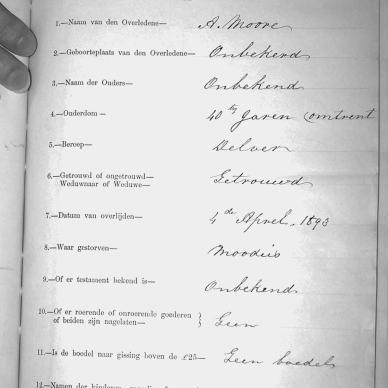 1.—Naam van den Overledene— A. Moore
2.—Geboorteplaats van den Overledene— Onbekend
3.—Naam der Ouders— Onbekend
4.—Ouderdom— 40 tig Jaren omtrent
5.—Beroep— Delver
6.—Getrouwd of ongetrouwd— Getrouwd
Weduwnaar of Weduwe—
7.—Datum van overlijden— 4 de April 1893
8.—Waar gestorven— Moodies
9.—Of er testament bekend is— Onbekend
10.—Of er roerende of onroerende goederen } Geen
of beiden zijn nagelaten— }
11.—Is de boedel naar gissing boven de £25— Geen boedel
12.—Namen der kinderen